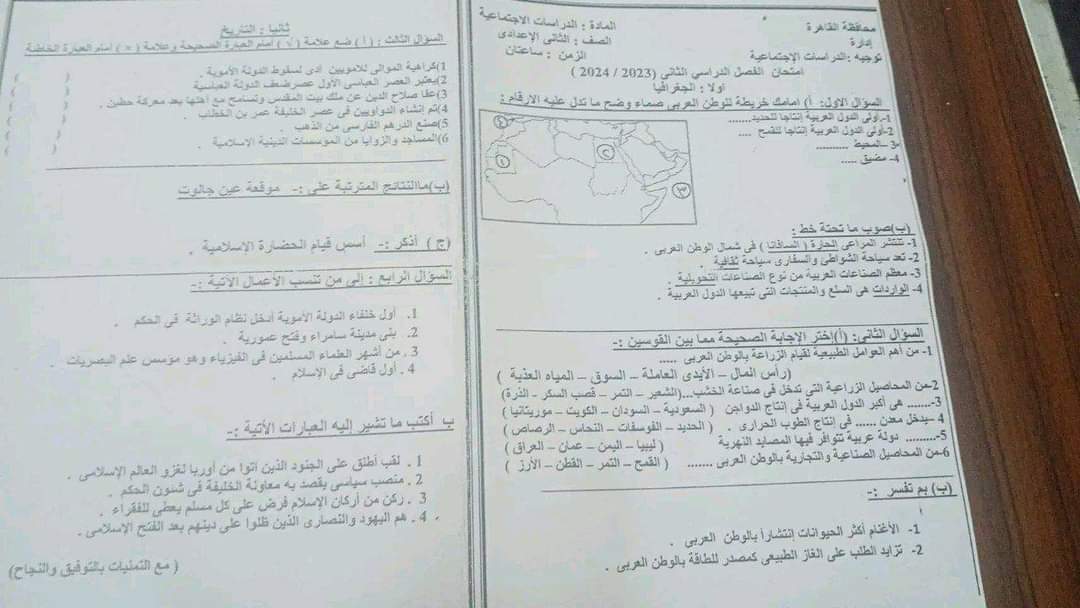 محافظة القاهرة
إدارة
توجيه :الدراسات الإجتماعية
المادة : الدراسات الاجتماعية
الصف : الثانى الإعدادى
الزمن : ساعتان
امتحان الفصل الدراسي الثاني (2023 / 2024 )
اولا : الجغرافيا
السؤال الاول: أ) امامك خريطة للوطن العربى صماء وضح ما تدل عليه الارقام:
1-.أولى الدول العربية إنتاجا للحديد.......
2-أولى الدول العربية إنتاجا للقمح ....
3- –المحيط ..........
4- مضيق .....
٤
١
٢
٣
(ب)صوب ما تحتة خط :
1- تنتشر المراعى الحارة ( السافانا ) فى شمال الوطن العربى .
2- تعد سياحة الشواطئ والسفارى سياحة ثقافية .
3- معظم الصناعات العربية من نوع الصناعات التحويلية .
4- الواردات هى السلع والمنتجات التى تبيعها الدول العربية .
السؤال الثانى: (أ)إختر الإجابة الصحيحة مما بين القوسين :-
1- من أهم العوامل الطبيعية لقيام الزراعة بالوطن العربى .....
(رأس المال – الأيدى العاملة – السوق – المياه العذبة )
2-من المحاصيل الزراعية التى تدخل فى صناعة الخشب...(الشعير – التمر – قصب السكر - الذرة)
3-....... هى أكبر الدول العربية فى إنتاج الدواجن ( السعودية – السودان – الكويت – موريتانيا )
4 –يدخل معدن ...... فى إنتاج الطوب الحرارى . ( الحديد – الفوسفات – النحاس – الرصاص )
5-......... دولة عربية تتوافر فيها المصايد النهرية ( ليبيا – اليمن – عمان – العراق )
6-من المحاصيل الصناعية والتجارية بالوطن العربى ....... ( القمح – التمر – القطن – الأرز )
(ب) بم تفسر :-
1- الأغنام أكثر الحيوانات إنتشارا بالوطن العربى .
2- تزايد الطلب على الغاز الطبيعى كمصدر للطاقة بالوطن العربى .
ثانيا : التاريخ
السؤال الثالث : (أ ) ضع علامة (√ ) أمام العبارة الصحيحة وعلامة (× ) أمام العبارة الخاطئة
1)كراهية الموالى للامويين أدى لسقوط الدولة الأموية . ( )
2)يعتبر العصر العباسى الاول عصرضعف الدولة العباسية ( )
3)عفا صلاح الدين عن ملك بيت المقدس وتسامح مع أهلها بعد معركة حطين . ( )
4)تم إنشاء الدواوين فى عصر الخليفة عمر بن الخطاب . ( )
5)صنع الدرهم الفارسى من الذهب . ( )
6)المساجد والزوايا من الموسسات الدينية الإسلامية . ( )
(ب)ماالنتائج المترتبة على :- موقعة عين جالوت
(ج ) أذكر :- أسس قيام الحضارة الإسلامية .
السؤال الرابع : إلى من تنسب الأعمال الآتية :-
1. أول خلفاء الدولة الأموية أدخل نظام الوراثة فى الحكم .
2. بنى مدينة سامراء وفتح عمورية .
3 . من أشهر العلماء المسلمين فى الفيزياء وهو مؤسس علم البصريات .
4 . أول قاضى فى الإسلام .
ب أكتب ما تشير إليه العبارات الأتية :-
1 . لقب أطلق على الجنود الذين أتوا من أوربا لغزو العالم الإسلامى .
2 . منصب سياسى يقصد به معاونة الخليفة فى شئون الحكم .
3 . ركن من أركان الإسلام فرض على كل مسلم يعطى للفقراء .
4 . هم اليهود والنصارى الذين ظلوا على دينهم بعد الفتح الإسلامى .
( مع التمنيات بالتوفيق والنجاح)